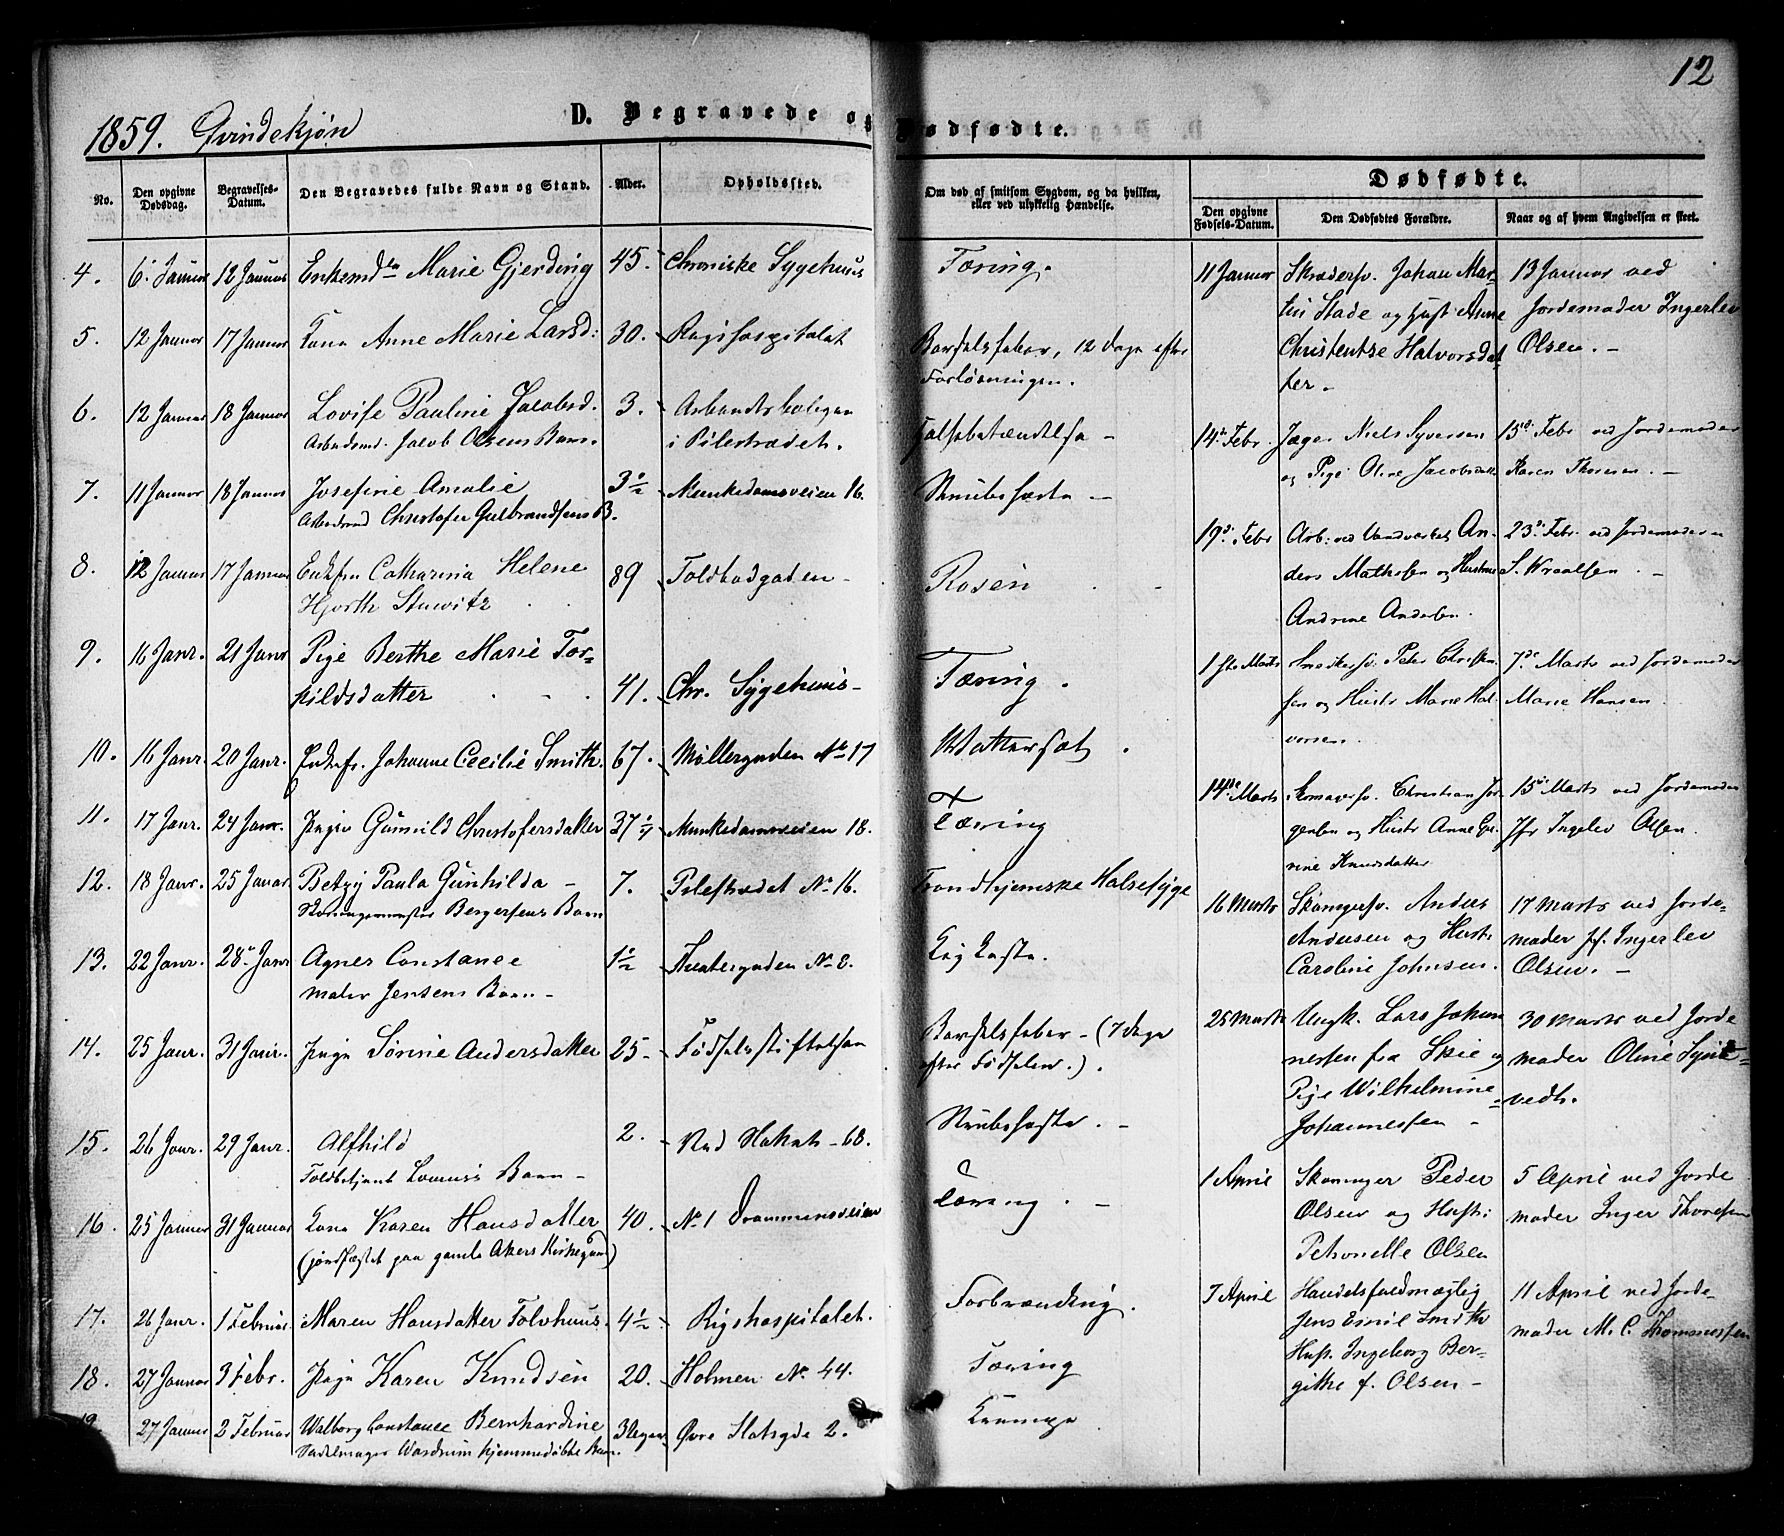 12
1859. Qvindekjøn
D. Begravede og Dødfødte.
No.
Den opgivne Dødsdag.
Begravelses-Datum.
Den Begravedes fulde Navn og Stand.
Alder.
Opholdssted.
Om død af smitsom Sygdom, og da hvilken,
eller ved ulykkelig Hændelse.
Dødfødte.
Den opgivne Fødsels-Datum.
Den Dødfødtes Forældre.
Naar og af hvem Angivelsen er skeet.
4. 6. Januar 12 Januar Enkemd Marie Gjerdrig 45. Chroniske Sygehuus Tæring.
5. 12 Januar 17 Januar Kone Anne Marie Larsd: 30. Rigshospitalet Barselsfeber, 12 dage efter
Forløsningen.
6. 12 Januar 18 Januar Lovise Pauline Jacobsd. 3. Arbeiderboligen Halsebetændelse -
Arbeidsmd. Jacob Olsens Barn. i Pilestrædet.
7. 11 Januar 18 Januar Josefine Amalie 3 1/2 Munkedamsveien 16. Strubehoste -
Arbeidsmd Christofer Gulbrandsens B.
8. 12 Januar 17 Januar Enkefru Catharina Helene 89 Toldbodgaden - Rosen
Hjorth Stuwitz
9. 16 Janr. 21 Janr Pige Berthe Marie Tor-
kildsdatter 41. Chr. Sygehuus - Tæring.
10. 16 Janr. 20 Janr. Enkefr. Johanne Cecilie Smith. 67. Møllergaden No 17 Vattersot.
11. 17 Janr. 24 Janr. Pige Gunild Christofersdatter 37 1/2 Munkedamsveien 18. Tæring
12. 18 Janr. 25 Januar Betzy Paula Gunhilda - 7. Pilestrædet No 16. Trondhjemske Halsesyge
Bergersens Barn
13. 22 Janr. 28 Janr Agnes Constance 1 1/2 Theatergaden No 8. Kighoste.
Maler Jensens Barn -
14. 25 Janr. 31 Janr. Pige Sørine Andersdatter 25 - Fødselsstiftelsen Barselsfeber - (7 dage
efter Fødselen.).
15. 26 Janr. 29 Janr. Alfhild 2. Ved Volkat - 68. Strubehoste. -
Toldbetjent Barn -
16. 25 Januar 31 Januar Kone Karen Hansdatter 40. No 1 Drammensveien Tæring. -
(jordfæstet paa gamle Akers Kirkegaard)
17. 26 Janr. 1 Februar. Maren Hansdatter Tolvhuus. 4 1/2 Rigshospitalet. Forbrænding.
18. 27 Januar 3 Febr. Pige Karen Knudsen 20. Holmen No 44. Tæring
27 Januar 2 Februar Walborg Constance Bernhardine 3 Uger Øvre Slotsgde 2. Krampe
Sadelmager Wardrum hjemmedøbte Barn.
11 Januar Skrædersv. Johan Mar- 13 Januar ved
tin Stade og Hust Anne Jordemoder Ingerlev
Christentze Halvorsdat Olsen. -
ter -
14 Febr. Jæger Niels Syversen 15 Febr ved Jordemoder
og Pige Oline Jacobsdatt Karen Thoresen. -
19 Febr Arb: ved Vandverket An- 23 Febr. ved Jordemoderen
ders Mathesen og Hustrue S. Wraalsen. -
Andrine Andersen.
1ste Marts Snedkersv. Peter Christen 7 Marts ved Jordemoder
sen og Hustr Marie Hal- Marie Hansen.
vorsen.
14 Marts Skomagersv. Christian Jør- 15 Marts ved Jordemoder
gensen og Hustr Anne Gu- Jfr Ingelev Olsen.
rine Knudsdatter
16 Marts Skomgersv. Anders 17 Marts ved Jorde-
Andersen og Hustr. moder Jf. Ingerlev
Caroline Johnsen. Olsen. -
25 Marts Ungk. Lars Johan 30 Marts ved Jorde
nessen fra Skie og moder Oline Syve-
Pige Wilhelmine vedt.
Johannessen -
1 April Skomager Peder 5 April ved Jorde
Olsen og Hustr: moder Inger Thoresen
Petronelle Olsen
7 April Handelsfuldmægtig 11 April ved Jorde-
Jens Emil Smith moder M. C. Thommesen
Hust. Ingeborg Ber-
githe f. Olsen -